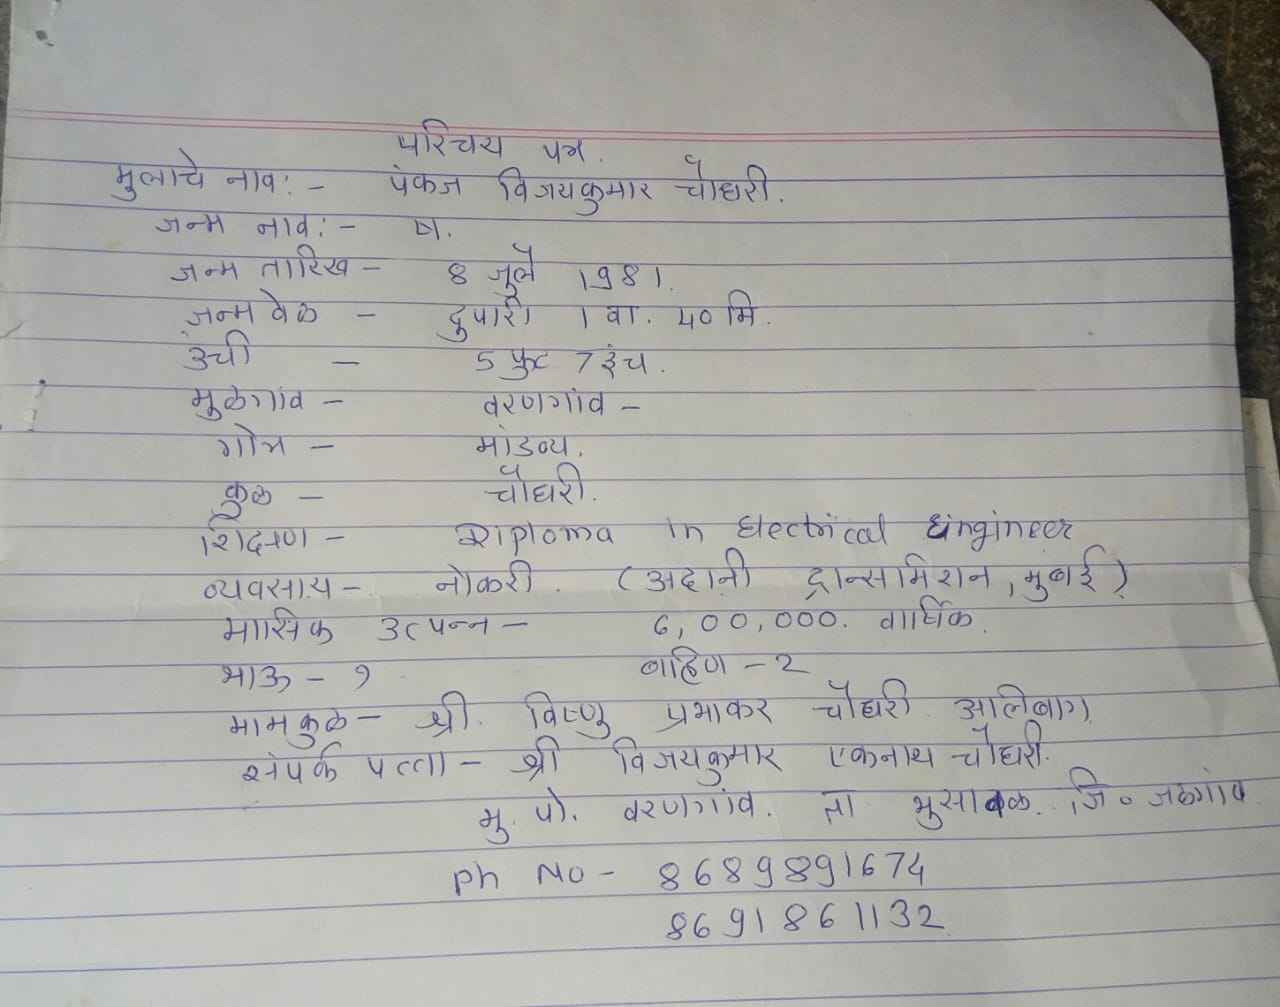 परिचय पत्र.
मुलाचे नाव: - पंकज विजयकुमार चौधरी.
जन्म नाव: - ष.
जन्म तारिख - 8 जुलै 1981.
जन्म वेळ - दुपारी 1 वा. 40 मि.
उंची - 5 फुट 7 इंच.
मुळगांव - वरणगांव -
गोत्र - मांडव्य.
कुळ - चौधरी.
शिक्षण - Diploma in Electrical Engineer
व्यवसाय - नोकरी. (अदानी ट्रान्समिशन, मुंबई)
मासिक उत्पन्न - 6,00,000. वार्षिक.
भाऊ - १ बहिण - 2
मामकुळ - श्री. विष्णु प्रभाकर चौधरी. अलिबाग.
संपर्क पत्ता - श्री विजयकुमार एकनाथ चौधरी.
मु. पो. वरणगांव. ता भुसावळ. जि० जळगांव
Ph No - 8689891674
8691861132